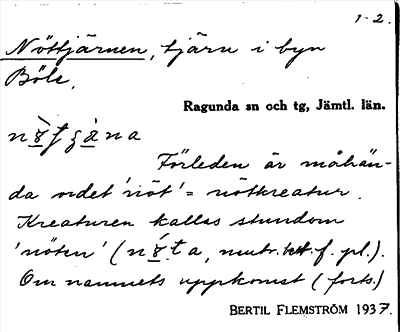 1-2.
Nöttjärnen, tjärn i byn
Böle.
Ragunda sn och tg, Jämtl. län.
Förleden är måhän-
da ordet 'nöt' = nötkreatur.
Kreaturen kallas stundom
'nöten' ( neutr. f. pl.).
Om namnets uppkomst (forts.)
BERTIL FLEMSTRÖM 1937.